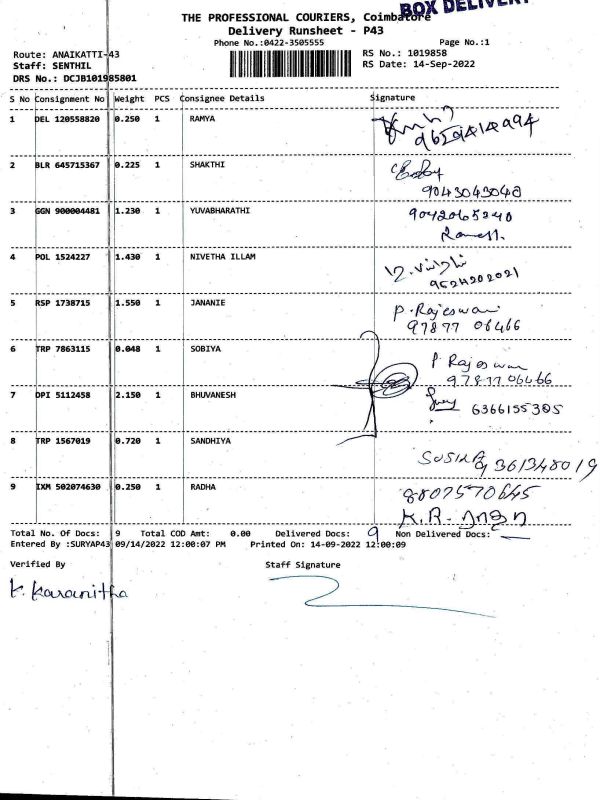 BOX DELIVERY
THE PROFESSIONAL COURIERS, Coimbatore
Delivery Runsheet - P43
Phone No.:0422-3505555 Page No.:1
Route: ANAIKATTI-43 RS No.: 1019858
Staff: SENTHIL RS Date: 14-Sep-2022
DRS No.: DCJB101985801
S No Consignment No Weight PCS Consignee Details Signature
1 DEL 120558820 0.250 1 RAMYA
2 BLR 645715367 0.225 1 SHAKTHI
9043043048
3 GGN 900004481 1.230 1 YUVABHARATHI 9042065240
Ramesh.
4 POL 1524227 1.430 1 NIVETHA ILLAM
9524202021
5 RSP 1738715 1.550 1 JANANIE P. Rajeswari
97877 06466
6 TRP 7863115 0.048 1 SOBIYA P Rajeswari
97877 06466
7 DPI 5112458 2.150 1 BHUVANESH 6366155305
8 TRP 1567019 0.720 1 SANDHIYA
9361348019
9 IXM 502074630 0.250 1 RADHA 8807570645
K.R-
Total No. Of Docs: 9 Total COD Amt: 0.00 Delivered Docs: 9 Non Delivered Docs: —
Entered By :SURYAP43 09/14/2022 12:00:07 PM Printed On: 14-09-2022 12:00:09
Verified By Staff Signature
K. Karanitha